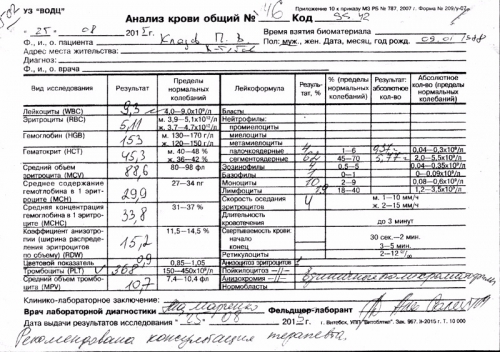 УЗ "ВОДЦ"
Приложение 10 к приказу МЗ РБ № 787, 2007 г. Форма № 209/у-07
Анализ крови общий № 46 Код
"25" 08 201 г. Время взятия биоматериала
Ф., и., о. пациента П. В. Пол: муж., жен. Дата, месяц, год рожд. 09.01
Адрес места жительства:
Диагноз:
Ф., и., о. врача
Вид исследования Результат Пределы нормальных колебаний Лейкоформула Результат, % % (пределы нормальных колебаний) Результат: абсолютное кол-во Абсолютное кол-во (пределы нормальных колебаний)
Лейкоциты (WBC) 9,3 4,0–9,0х10⁹/л Бласты
Эритроциты (RBC) 5,11 м. 3,9–5,1х10¹²/л Нейтрофилы:
ж. 3,7–4,7х10¹²/л промиелоциты
Гемоглобин (HGB) 153 м. 130–170 г/л миелоциты
ж. 120–150 г/л метамиелоциты
Гематокрит (HCT) 45,3 м. 40–48 % палочкоядерные 4 1–6 0,04–0,3х10⁹/л
ж. 36–42 % сегментоядерные 45–70 5,77 2,0–5,5х10⁹/л
Средний объем эритроцита (MCV) 88,6 80–98 фл Эозинофилы 0,5–5 0,04–0,35х10⁹/л
Базофилы 0–1 0–0,09х10⁹/л
Среднее содержание гемоглобина в 1 эритроците (MCH) 29,9 27–34 пг Моноциты 10 2–9 0,08–0,6х10⁹/л
Лимфоциты 18–40 1,2–3,5х10⁹/л
Средняя концентрация гемоглобина в 1 эритроците (MCHC) 33,8 31–37 % Скорость оседания эритроцитов 4 м. 1–10 мм/ч
ж. 2–15 мм/ч
Длительность кровотечения до 3 минут
Коэффициент анизотропии (ширина распределения эритроцитов по объему) (RDW) 15,2 11,5–14,5 % Свертываемость крови:
начало 30 сек.–2 мин.
конец 3–5 мин.
Ретикулоциты 2–12 ⁰/₀₀
Цветовой показатель 0,85–1,05 Анизоцитоз эритроцитов
Тромбоциты (PLT) 368 150–450х10⁹/л Пойкилоцитоз –//–
Средний объем тромбоцита (MPV) 10,7 7,4–10,4 фл Анизохромия –//–
Нормобласты
Клинико-лабораторное заключение:
Врач лабораторной диагностики Фельдшер-лаборант
Дата выдачи результатов исследования "25" 08 201 г.
г. Витебск, УПП "Витоблтип". Зак. 967, 9-2015 г. Т. 10 000
Рекомендована консультация терапевта.